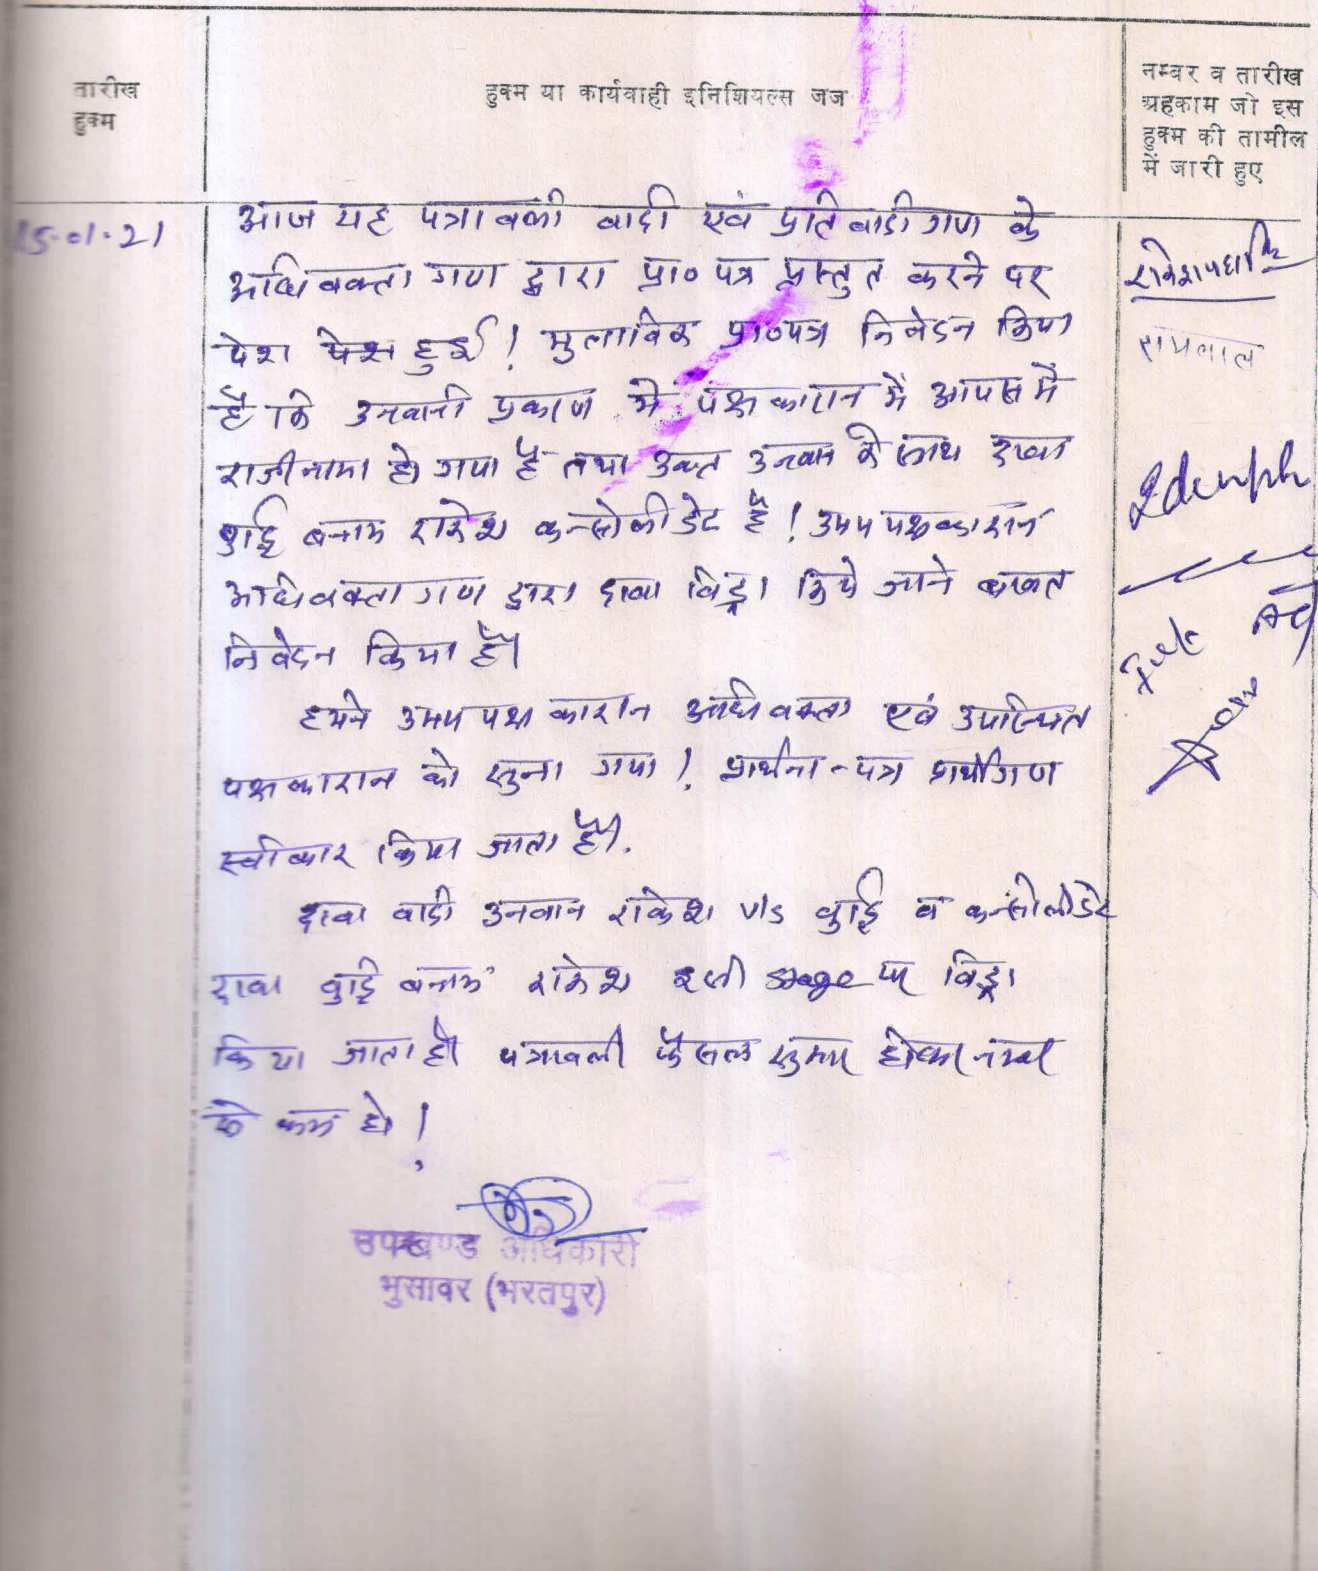 तारीख
हुक्म
हुक्म या कार्यवाही इनिशियल्स जज
नम्बर व तारीख
अहकाम जो इस
हुक्म की तामील
में जारी हुए
15-01-21
आज यह पत्रावली वादी एवं प्रतिवादीगण के
अधिवक्तागण द्वारा प्रा० पत्र प्रस्तुत करने पर
पेश हुई! मुताबिक प्रा०पत्र निवेदन किया
है कि उनवानी प्रकरण में पक्षकारान में आपस में
राजीनामा हो गया है तथा उक्त उनवान के साथ दावा
बनाम राकेश कन्सोलीडेट है! उभयपक्षकारान
अधिवक्तागण द्वारा दावा विड्रा किये जाने बाबत
निवेदन किया है।
हमने उभयपक्षकारान अधिवक्ता एवं उपस्थित
पक्षकारान को सुना गया! प्रार्थना-पत्र प्रार्थीगण
स्वीकार किया जाता है।
दावा वादी उनवान राकेश v/s व कन्सोलीडेट
दावा बनाम राकेश इसी stage पर विड्रा
किया जाता है। पत्रावली फैसल शुमार होकर नम्बर
से कम हो!
उपखण्ड अधिकारी
भुसावर (भरतपुर)
रामलाल